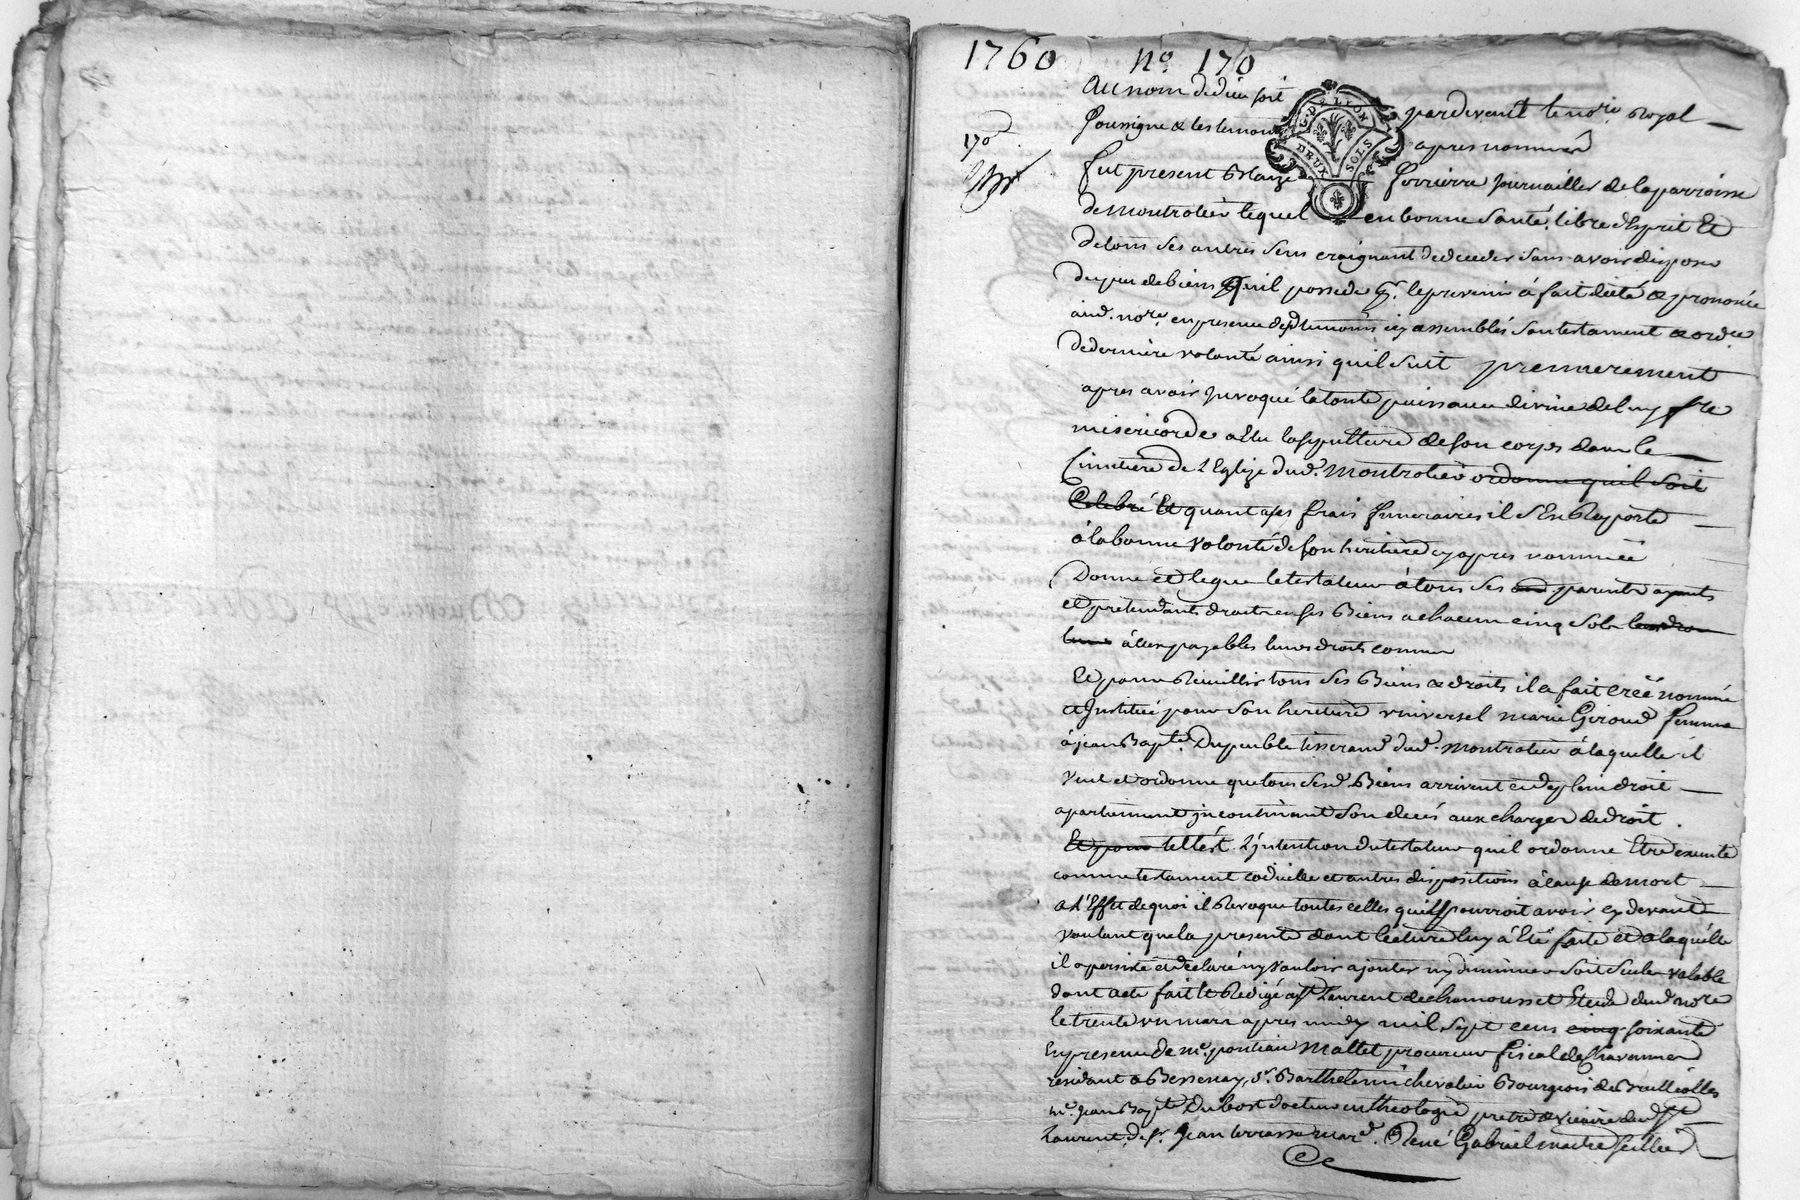 1760 no. 170
Au nom de dieu soit pardevant le nore Royal
soussigne & les temoins apres nommés
170
G. DE LYON
DEUX SOLS
fut present Blaize ferriere journailler de la parroisse
de montrotier lequel en bonne santé, libre d'Esprit Et
de tous ses autres sens craignant de deceder sans avoir disposé
du peu de biens qu'il possede pr. le prevenir à fait dicté & prononcé
aud. nore. en presence des temoins icy assemblés son testament & ordce
de derniere volonté ainsi quil suit premierement
apres avoir Invoqué la toute puissance divine de luy fre
misericorde a Elu la sepulture de son corps dans le
Cimitiere de l'Eglize dud. montrotier ordonne quil soit
Celebré Et quant a ses frais funeraires il s'En Raporte
à la bonne volonté de son heritiere cy apres nommée
Donne et legue le testateur à tous ses parents ayants
et pretendants droits en ses Biens a chacun cinq sols
à eux payables leurs droits comme
Et pour Recuillir tous ses Biens & droits il a fait créé nommé
et Institué pour son heritiere universel marie Giroud femme
à jean Bapte. Dupeuble tisserand dud. montrotier à laquelle il
veut et ordonne que tous sesd. Biens arrivent en plein droit
apartiennent incontinant son decés aux charges de droit.
Et pour tell'est l'intention du testateur quil ordonne Etre executé
comme testament codicille et autres dispositions à cause de mort
a l'Effet de quoi il Revoque toutes celles quil pourroit avoir cy devant
voulant que la presente dont lecture luy à Eté faite et a laquelle
il a persisté et declaré ny vouloir ajouter ny diminuer soit seule valable
dont acte fait et Redigé a st Laurent de chamousset Etude dud nore
le trente un mars apres midy mil sept cens cinq soixante
En presence de me. pontian Mallet procureur fiscal de
residant a Bessenay, sr. Barthelemi chevalier Bourgeois de Brulliolles
me. Jean Bapte Dubost docteur en theologie pretre & vicaire dud st
Laurent, & sr. Jean terrasse mard. René Gabriel maitre sellier